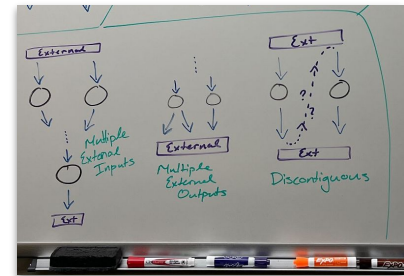 External
Multiple
External
Inputs
Ext
External
Multiple
External
Outputs
Ext
?
?
Ext
Discontiguous
EXPO
EXPO